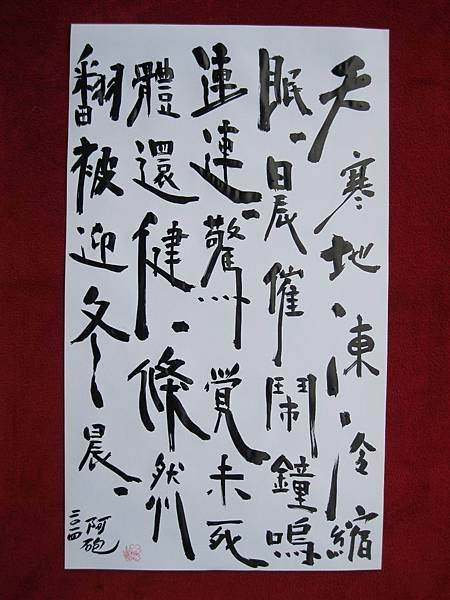 天寒地凍冷縮
眠、晨催鬧鐘鳴
連連、驚覺未死
體還健、條然
翻被迎冬晨、
阿砲
二〇一四